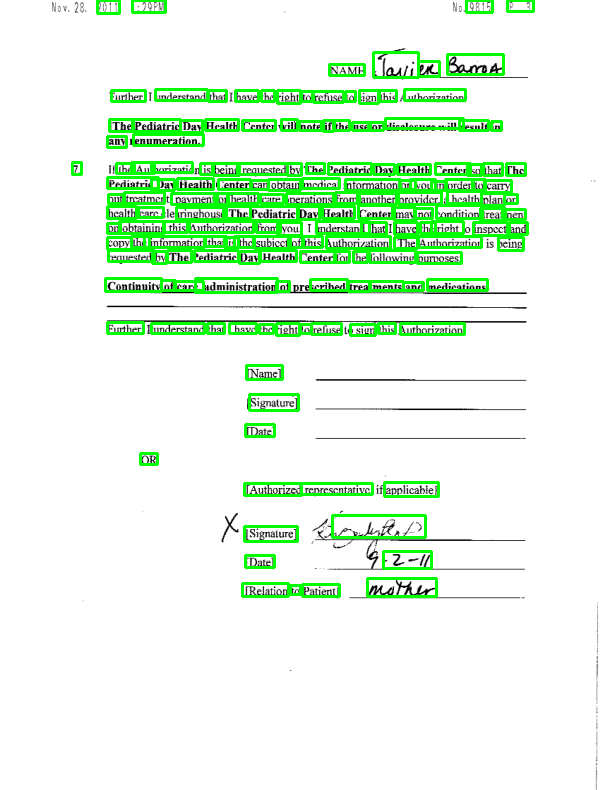 Nov. 28. 2011 1:29PM No. 9815 P. 3
NAME Javier Barros
Further, I understand that I have the right to refuse to sign this Authorization.
The Pediatric Day Health Center will note if the use or disclosure will result in
any renumeration.
7 If the Authorization is being requested by The Pediatric Day Health Center so that The
Pediatric Day Health Center can obtain medical information on you in order to carry
out treatment, payment or health care operations from another provider, a health plan or
health care clearinghouse The Pediatric Day Health Center may not condition treatment
on obtaining this Authorization from you. I understand that I have the right to inspect and
copy the information that is the subject of this Authorization. The Authorization is being
requested by The Pediatric Day Health Center for the following purposes
Continuity of care, administration of prescribed treatments and medications
Further, I understand that I have the right to refuse to sign this Authorization
[Name]
[Signature]
[Date]
OR
[Authorized representative if applicable]
X [Signature]
[Date] 9-2-11
[Relation to Patient] mother